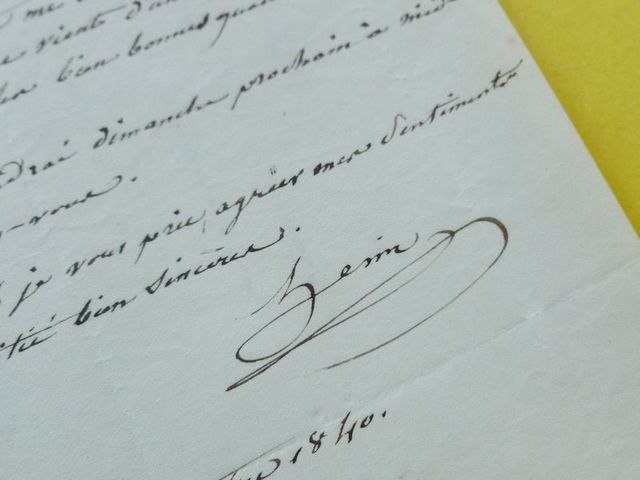 me
viens d'un
bien bonnes
dimanche prochain à midi
-vous.
je vous prie, agréer mes sentiments
bien sincères.
henin
1840.